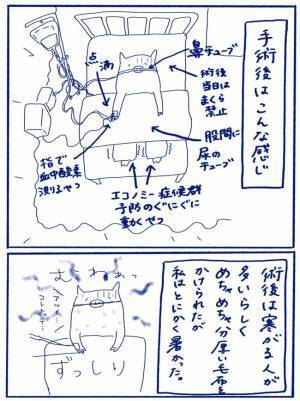 手術後はこんな感じ
鼻チューブ
術後
当日は
まくら
禁止
点滴
股間に
尿の
チューブ
指で
血中酸素
測るやつ
エコノミー症候群
予防のぐにぐに
動くやつ
術後は寒がる人が
多いらしく
めちゃめちゃ分厚い毛布を
かけられたが
私はとにかく暑かった。
むわぁっ
ずっしり